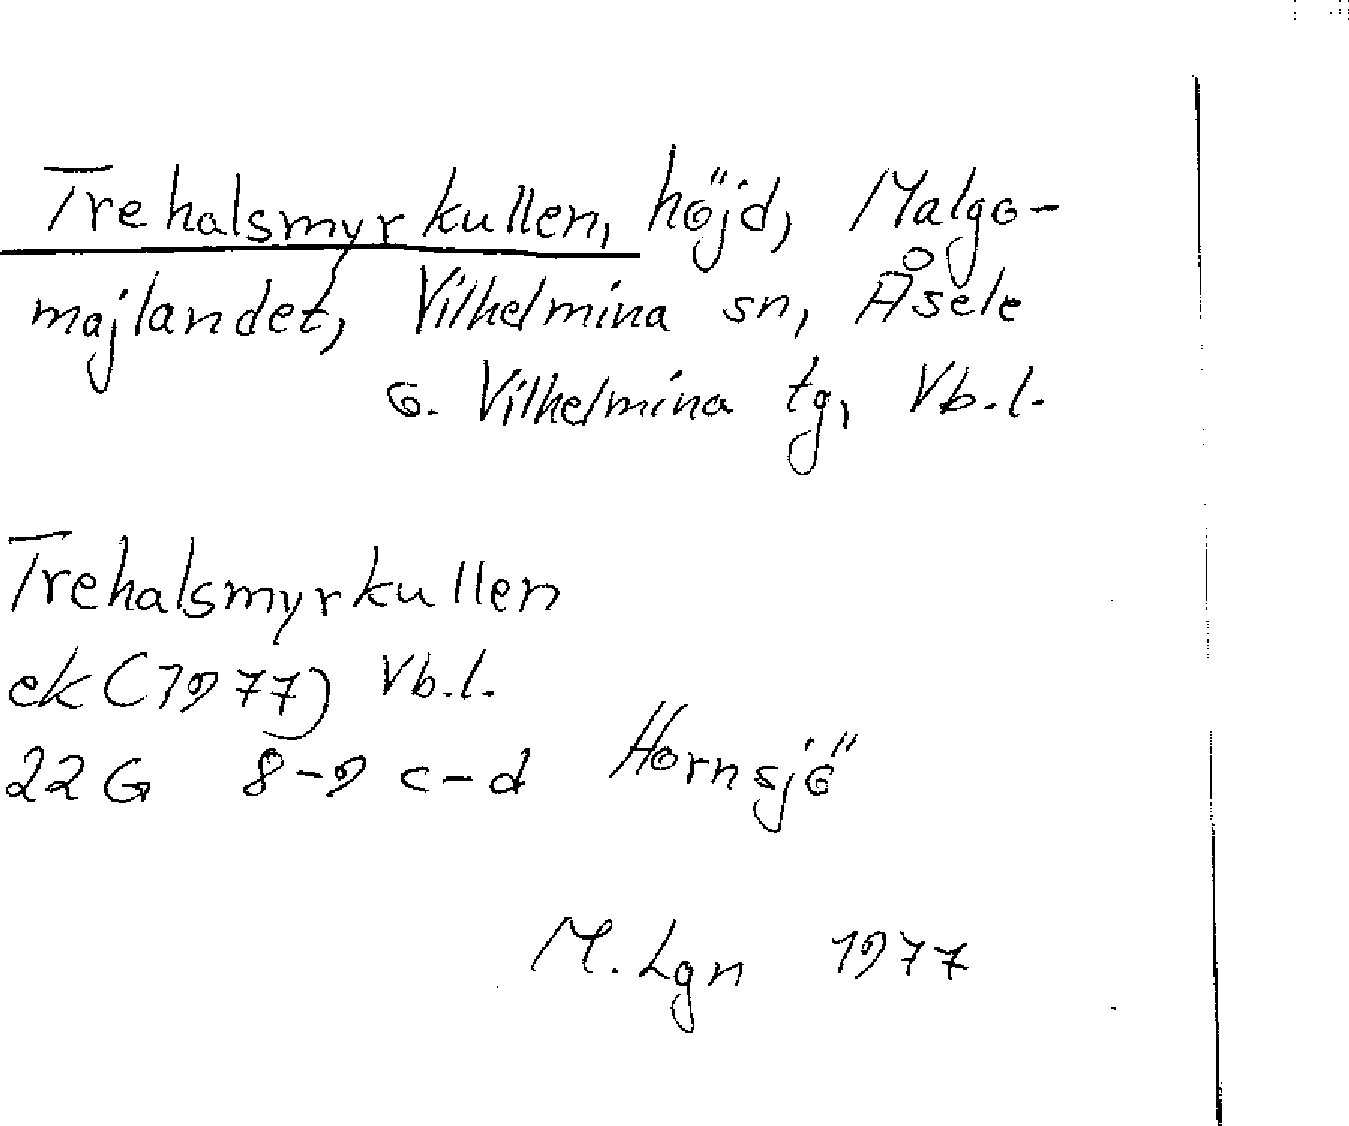 Trehalsmyrkullen, höjd, Malgo-
majlandet, Vilhelmina sn, Åsele
o. Vilhelmina tg, Vb.l.
Trehalsmyrkullen
ek (1977) Vb.l.
22G 8-9 c-d Hornsjö
M. Lgn 1977